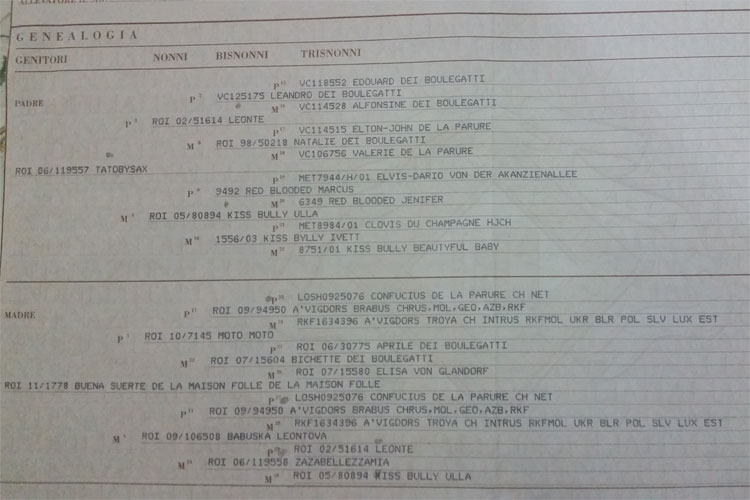 GENEALOGIA
GENITORI NONNI BISNONNI TRISNONNI
P VC118552 EDOUARD DEI BOULEGATTI
P VC125175 LEANDRO DEI BOULEGATTI
PADRE
M VC114528 ALFONSINE DEI BOULEGATTI
P ROI 02/51614 LEONTE
P VC114515 ELTON-JOHN DE LA PARURE
M ROI 98/50218 NATALIE DEI BOULEGATTI
M VC106756 VALERIE DE LA PARURE
ROI 06/119557 TATOBYSAX
P MET7944/H/01 ELVIS-DARIO VON DER AKANZIENALLEE
P 9492 RED BLOODED MARCUS
M 6349 RED BLOODED JENIFER
M ROI 05/80894 KISS BULLY ULLA
P MET8984/01 CLOVIS DU CHAMPAGNE HJCH
M 1556/03 KISS BYLLY IVETT
M 8751/01 KISS BULLY BEAUTYFUL BABY
P LOSH0925076 CONFUCIUS DE LA PARURE CH NET
P ROI 09/94950 A'VIGDORS BRABUS CHRUS,MOL,GEO,AZB,RKF
MADRE
M RKF1634396 A'VIGDORS TROYA CH INTRUS RKFMOL UKR BLR POL SLV LUX EST
P ROI 10/7145 MOTO MOTO
P ROI 06/30775 APRILE DEI BOULEGATTI
M ROI 07/15604 BICHETTE DEI BOULEGATTI
M ROI 07/15580 ELISA VON GLANDORF
ROI 11/1778 BUENA SUERTE DE LA MAISON FOLLE DE LA MAISON FOLLE
P LOSH0925076 CONFUCIUS DE LA PARURE CH NET
P ROI 09/94950 A'VIGDORS BRABUS CHRUS,MOL,GEO,AZB,RKF
M RKF1634396 A'VIGDORS TROYA CH INTRUS RKFMOL UKR BLR POL SLV LUX EST
M ROI 09/106508 BABUSKA LEONTOVA
P ROI 02/51614 LEONTE
M ROI 06/119558 ZAZABELLEZZAMIA
M ROI 05/80894 KISS BULLY ULLA